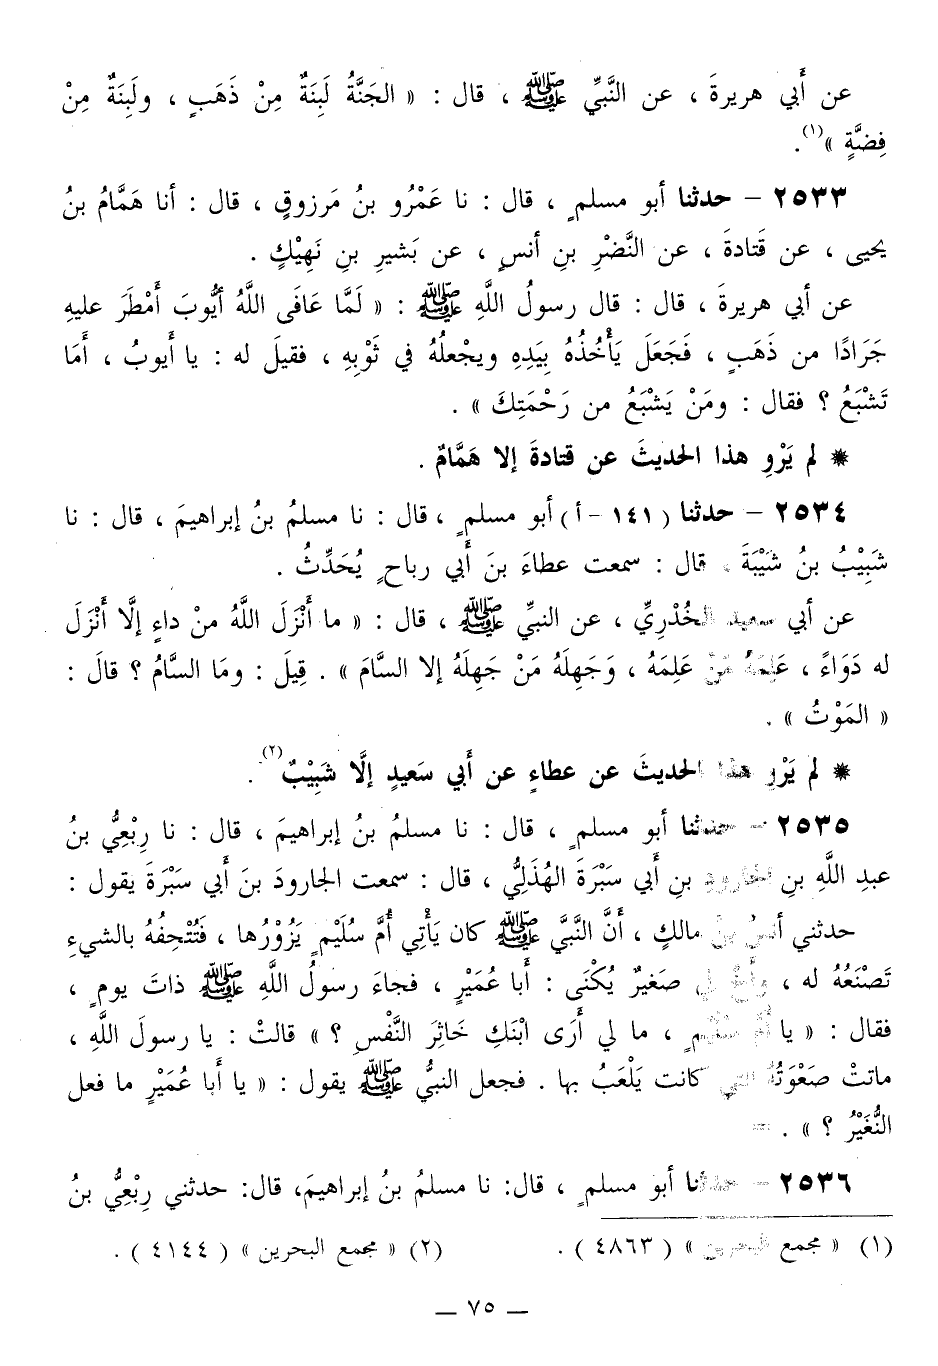 عن أَبي هريرةَ ، عن النَّبيِّ ﷺ ، قال : « الجَنَّةُ لَبِنَةٌ مِنْ ذَهَبٍ ، ولَبِنَةٌ مِنْ
فِضَّةٍ »(١).
٢٥٣٣ – حدثنا أبو مسلم ٍ ، قال : نا عَمْرُو بنُ مَرزوقٍ ، قال : أنا هَمَّامُ بنُ
يحيى ، عن قَتادةَ ، عن النَّضْرِ بنِ أنسٍ ، عن بَشيرِ بنِ نَهِيْكٍ .
عن أبي هريرةَ ، قال : قال رسولُ اللَّهِ ﷺ : « لَمَّا عَافَى اللَّهُ أيُّوبَ أَمْطَرَ عليهِ
جَرَادًا من ذَهَبٍ ، فَجَعَلَ يَأْخُذُهُ بِيَدِهِ ويجْعلُهُ في ثَوْبِهِ ، فقيلَ له : يا أَيوبُ ، أَمَا
تَشْبَعُ ؟ فقال : ومَنْ يَشْبَعُ من رَحْمَتِكَ » .
* لم يَرْوِ هذا الحديثَ عن قتادةَ إلا هَمَّامٌ .
٢٥٣٤ – حدثنا ( ١٤١ – أ ) أبو مسلم ٍ ، قال : نا مسلمُ بنُ إبراهيمَ ، قال : نا
شَبِيْبُ بنُ شَيْبَةَ ، قال : سمعت عطاءَ بنَ أَبي رباح ٍ يُحَدِّثُ .
عن أبي سعيد الخُدْرِيِّ ، عن النبيِّ ﷺ ، قال : « ما أَنْزَلَ اللَّهُ منْ داءٍ إلَّا أَنْزَلَ
له دَوَاءً ، عَلِمَهُ مَنْ عَلِمَهُ ، وَجَهِلَهُ مَنْ جَهِلَهُ إلا السَّامَ » . قِيلَ : ومَا السَّامُ ؟ قالَ :
« المَوْتُ » .
* لم يَرْوِ هذا الحديثَ عن عطاءٍ عن أَبي سَعيدٍ إلَّا شَبِيْبٌ(٢) .
٢٥٣٥ – حدثنا أبو مسلم ٍ ، قال : نا مسلمُ بنُ إبراهيمَ ، قال : نا رِبْعِيُّ بنُ
عبدِ اللَّهِ بنِ الجارودِ بنِ أَبي سَبْرَةَ الهُذَلِيُّ ، قال : سمعت الجارودَ بنَ أَبي سَبْرَةَ يقول :
حدثني أنسُ بنُ مالكٍ ، أَنَّ النَّبيَّ ﷺ كان يَأْتِي أُمَّ سُلَيْم ٍ يَزُوْرُها ، فَتُتْحِفُهُ بالشيءِ
تَصْنَعُهُ له ، وأَخٌ لي صَغيرٌ يُكْنَى : أبا عُمَيْرٍ ، فجاءَ رسولُ اللَّهِ ﷺ ذاتَ يوم ٍ ،
فقال : « يا أُمَّ سُلَيْم ٍ ، ما لي أَرَى ابْنَكِ خَاثِرَ النَّفْسِ ؟ » قالتْ : يا رسولَ اللَّهِ ،
ماتتْ صَعْوَتُهُ التي كانت يَلْعَبُ بها . فجعل النبيُّ ﷺ يقول : « يا أَبا عُمَيْرٍ ما فعل
النُّغَيْرُ ؟ » .
٢٥٣٦ – حدثنا أبو مسلم ٍ ، قال: نا مسلمُ بنُ إبراهيمَ، قال: حدثني رِبْعِيُّ بنُ
(١) « مجمع البحرين » ( ٤٨٦٣ ) . (٢) « مجمع البحرين » ( ٤١٤٤ ) .
— ٧٥ —